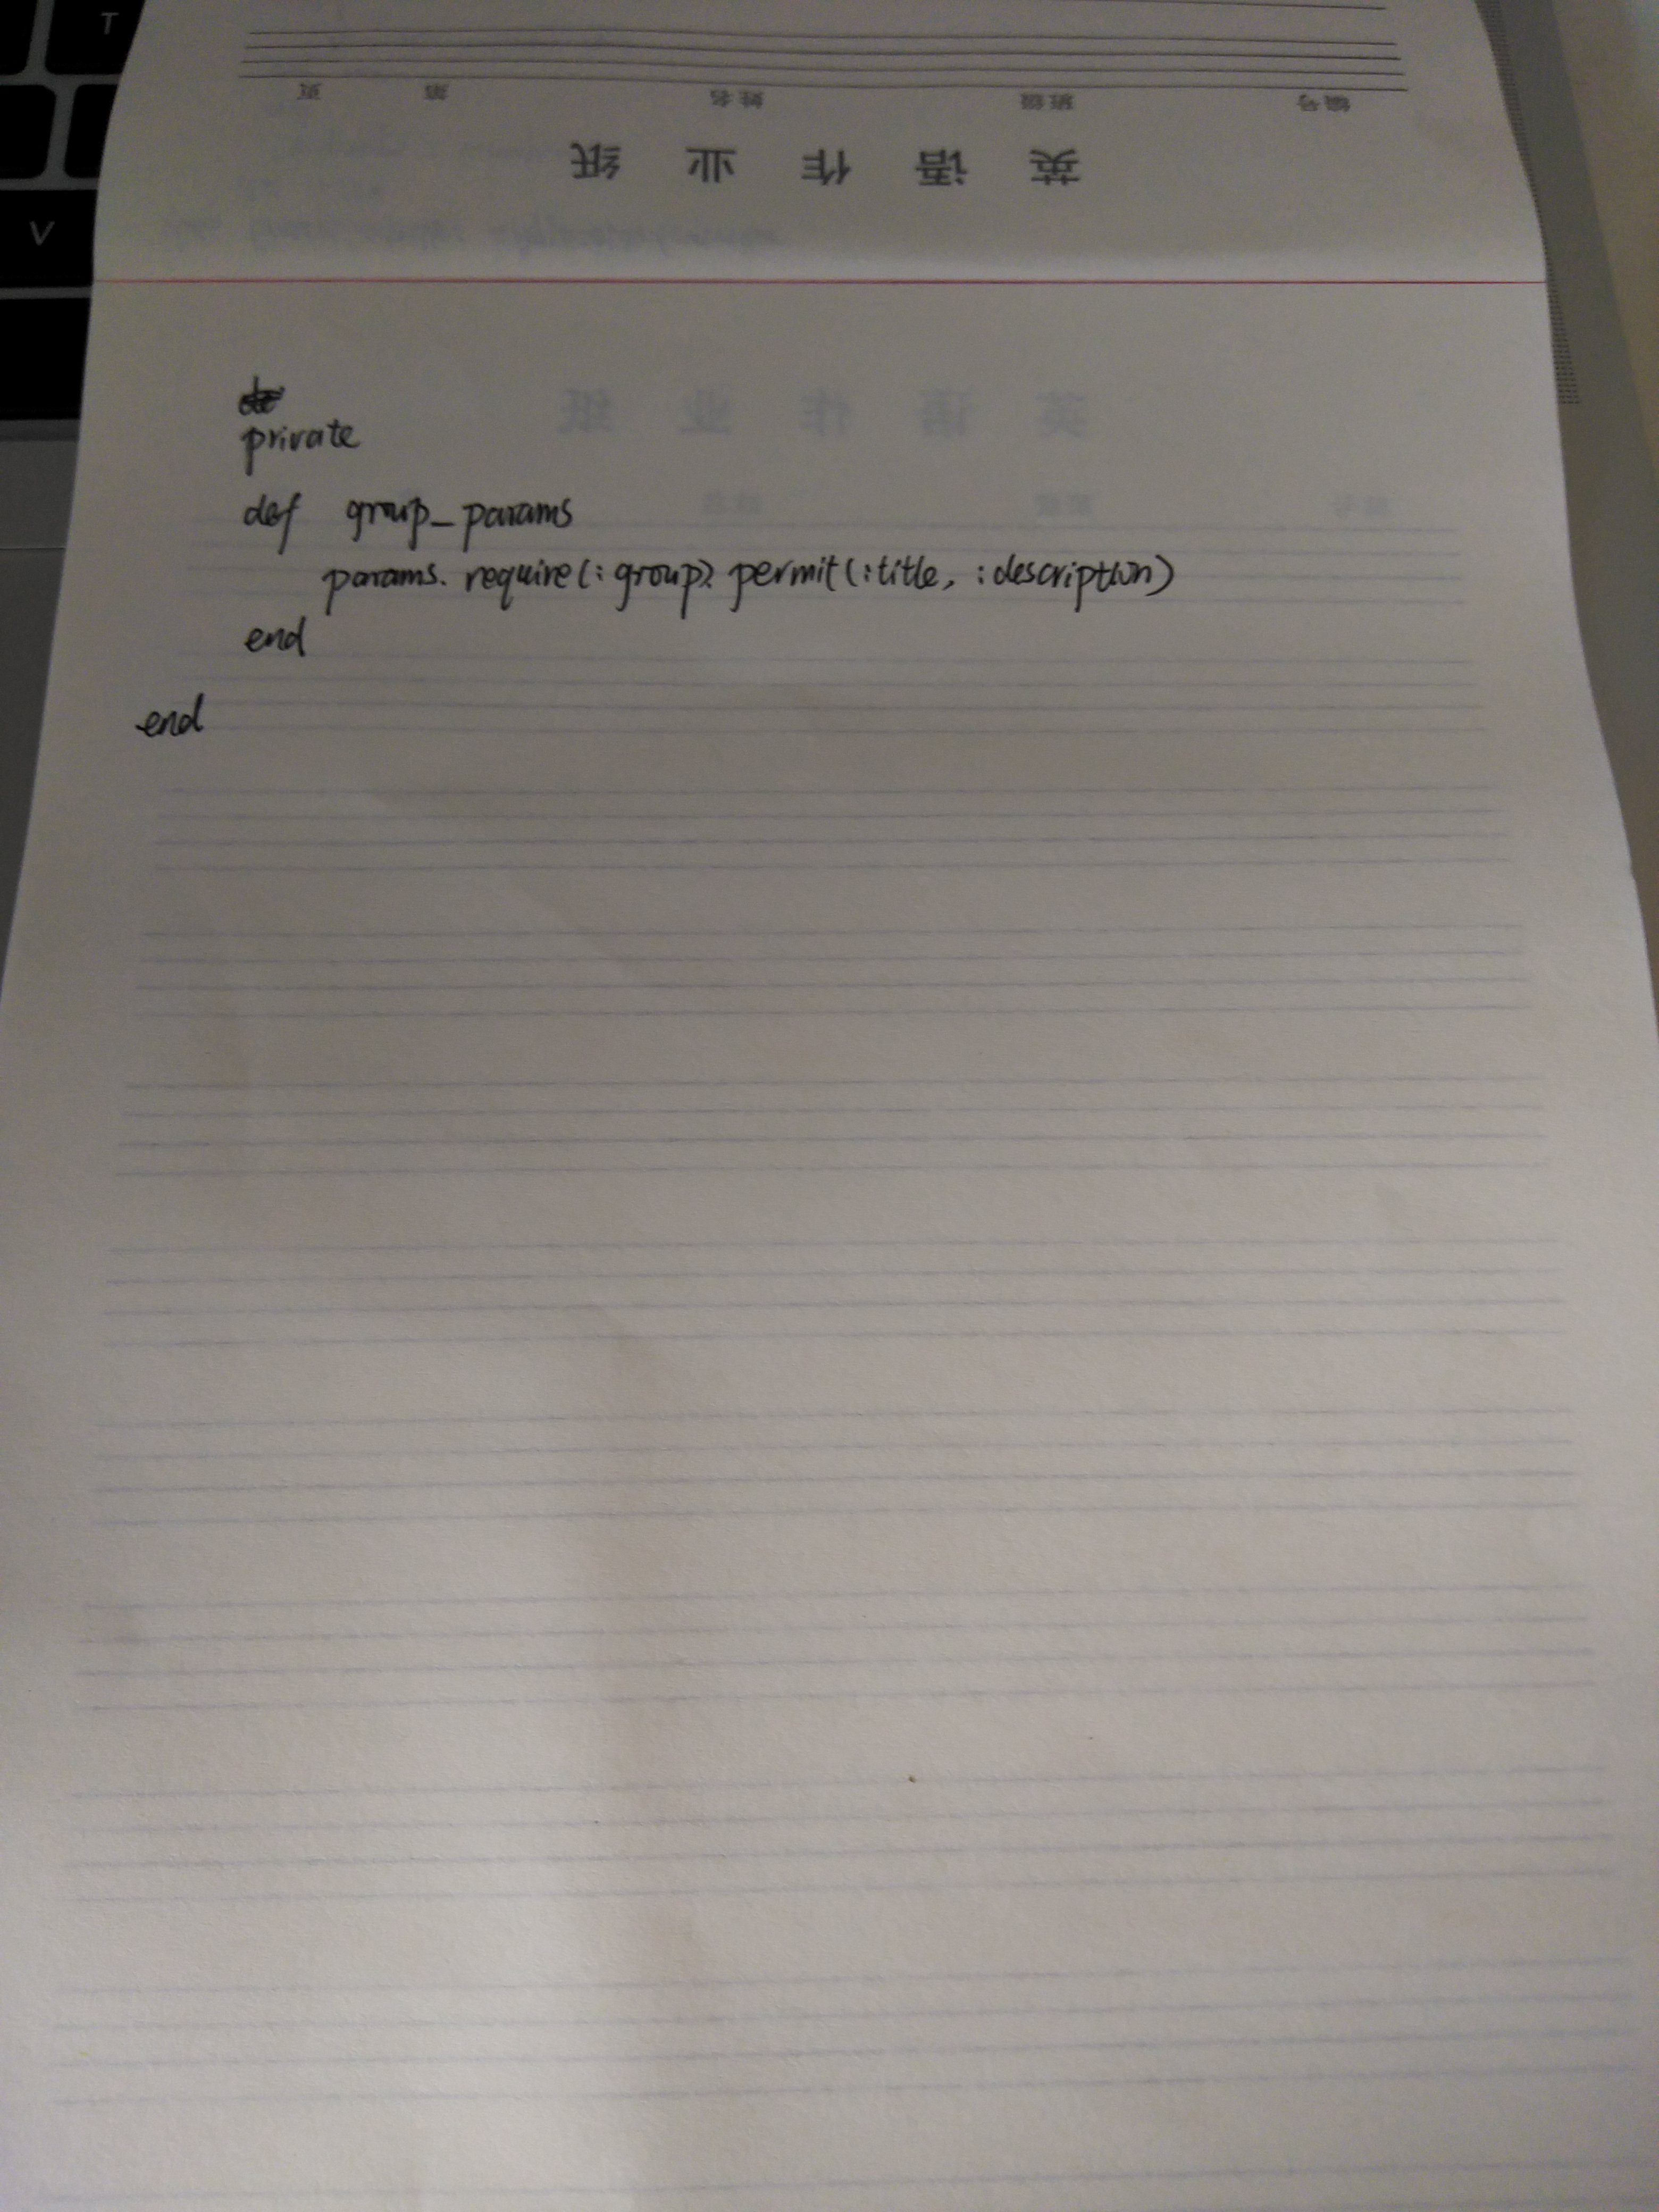 T
V
页 第 姓名 班级 编号
英语作业纸
private
def group_params
params.require(:group).permit(:title, :description)
end
end